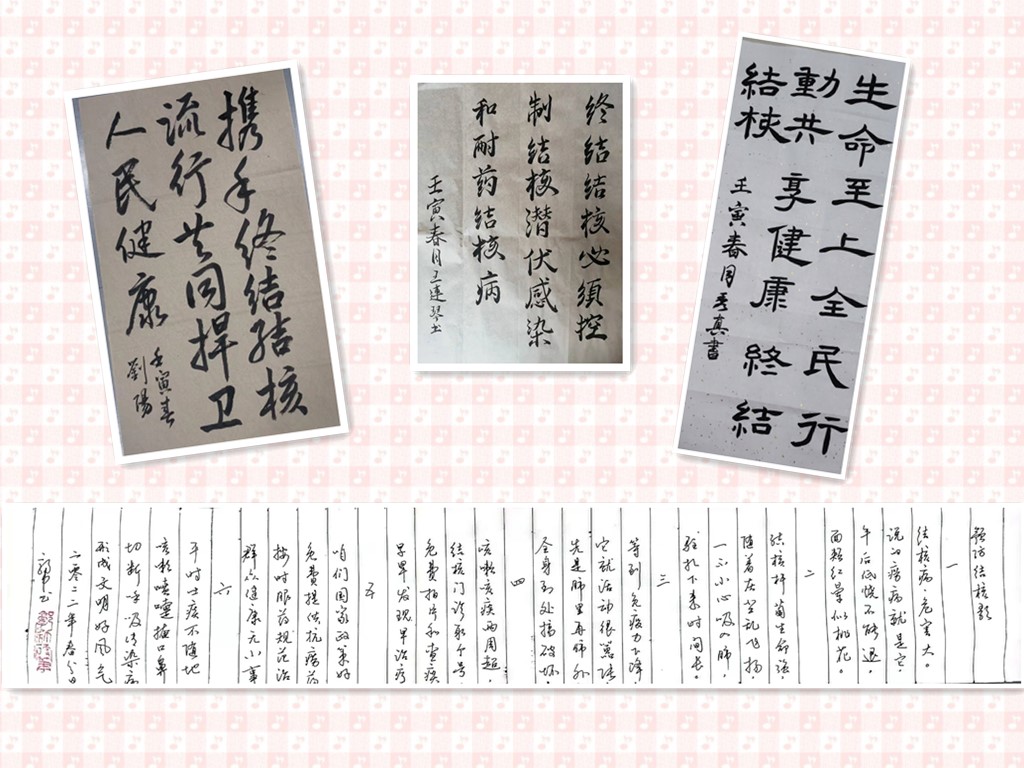 携手终结结核
流行共同捍卫
人民健康
壬寅春
劉陽
终结结核必須控
制结核潜伏感染
和耐药结核病
壬寅春月王莲琴书
生命至上全民行
動共享健康終結
結核
壬寅春月秀真書
预防结核歌
一
结核病,危害大。
说的痨病就是它,
午后低烧不能退,
面颊红晕似桃花。
二
结核杆菌生命活,
随着灰尘乱飞扬,
一不小心吸入肺,
驻扎下来时间长。
三
等到免疫力下降,
它就活动很嚣张,
先是肺里再肺外,
全身到处搞破坏。
四
咳嗽咳痰两周超,
结核门诊取个号
免费拍片和查痰
早早发现早治疗
五
咱们国家政策好
免费提供抗痨药
按时服药规范治
群众健康无小事
六
平时吐痰不随地
咳嗽喷嚏掩口鼻
切断呼吸传染病
形成文明好风气
二零二二年春分日
书